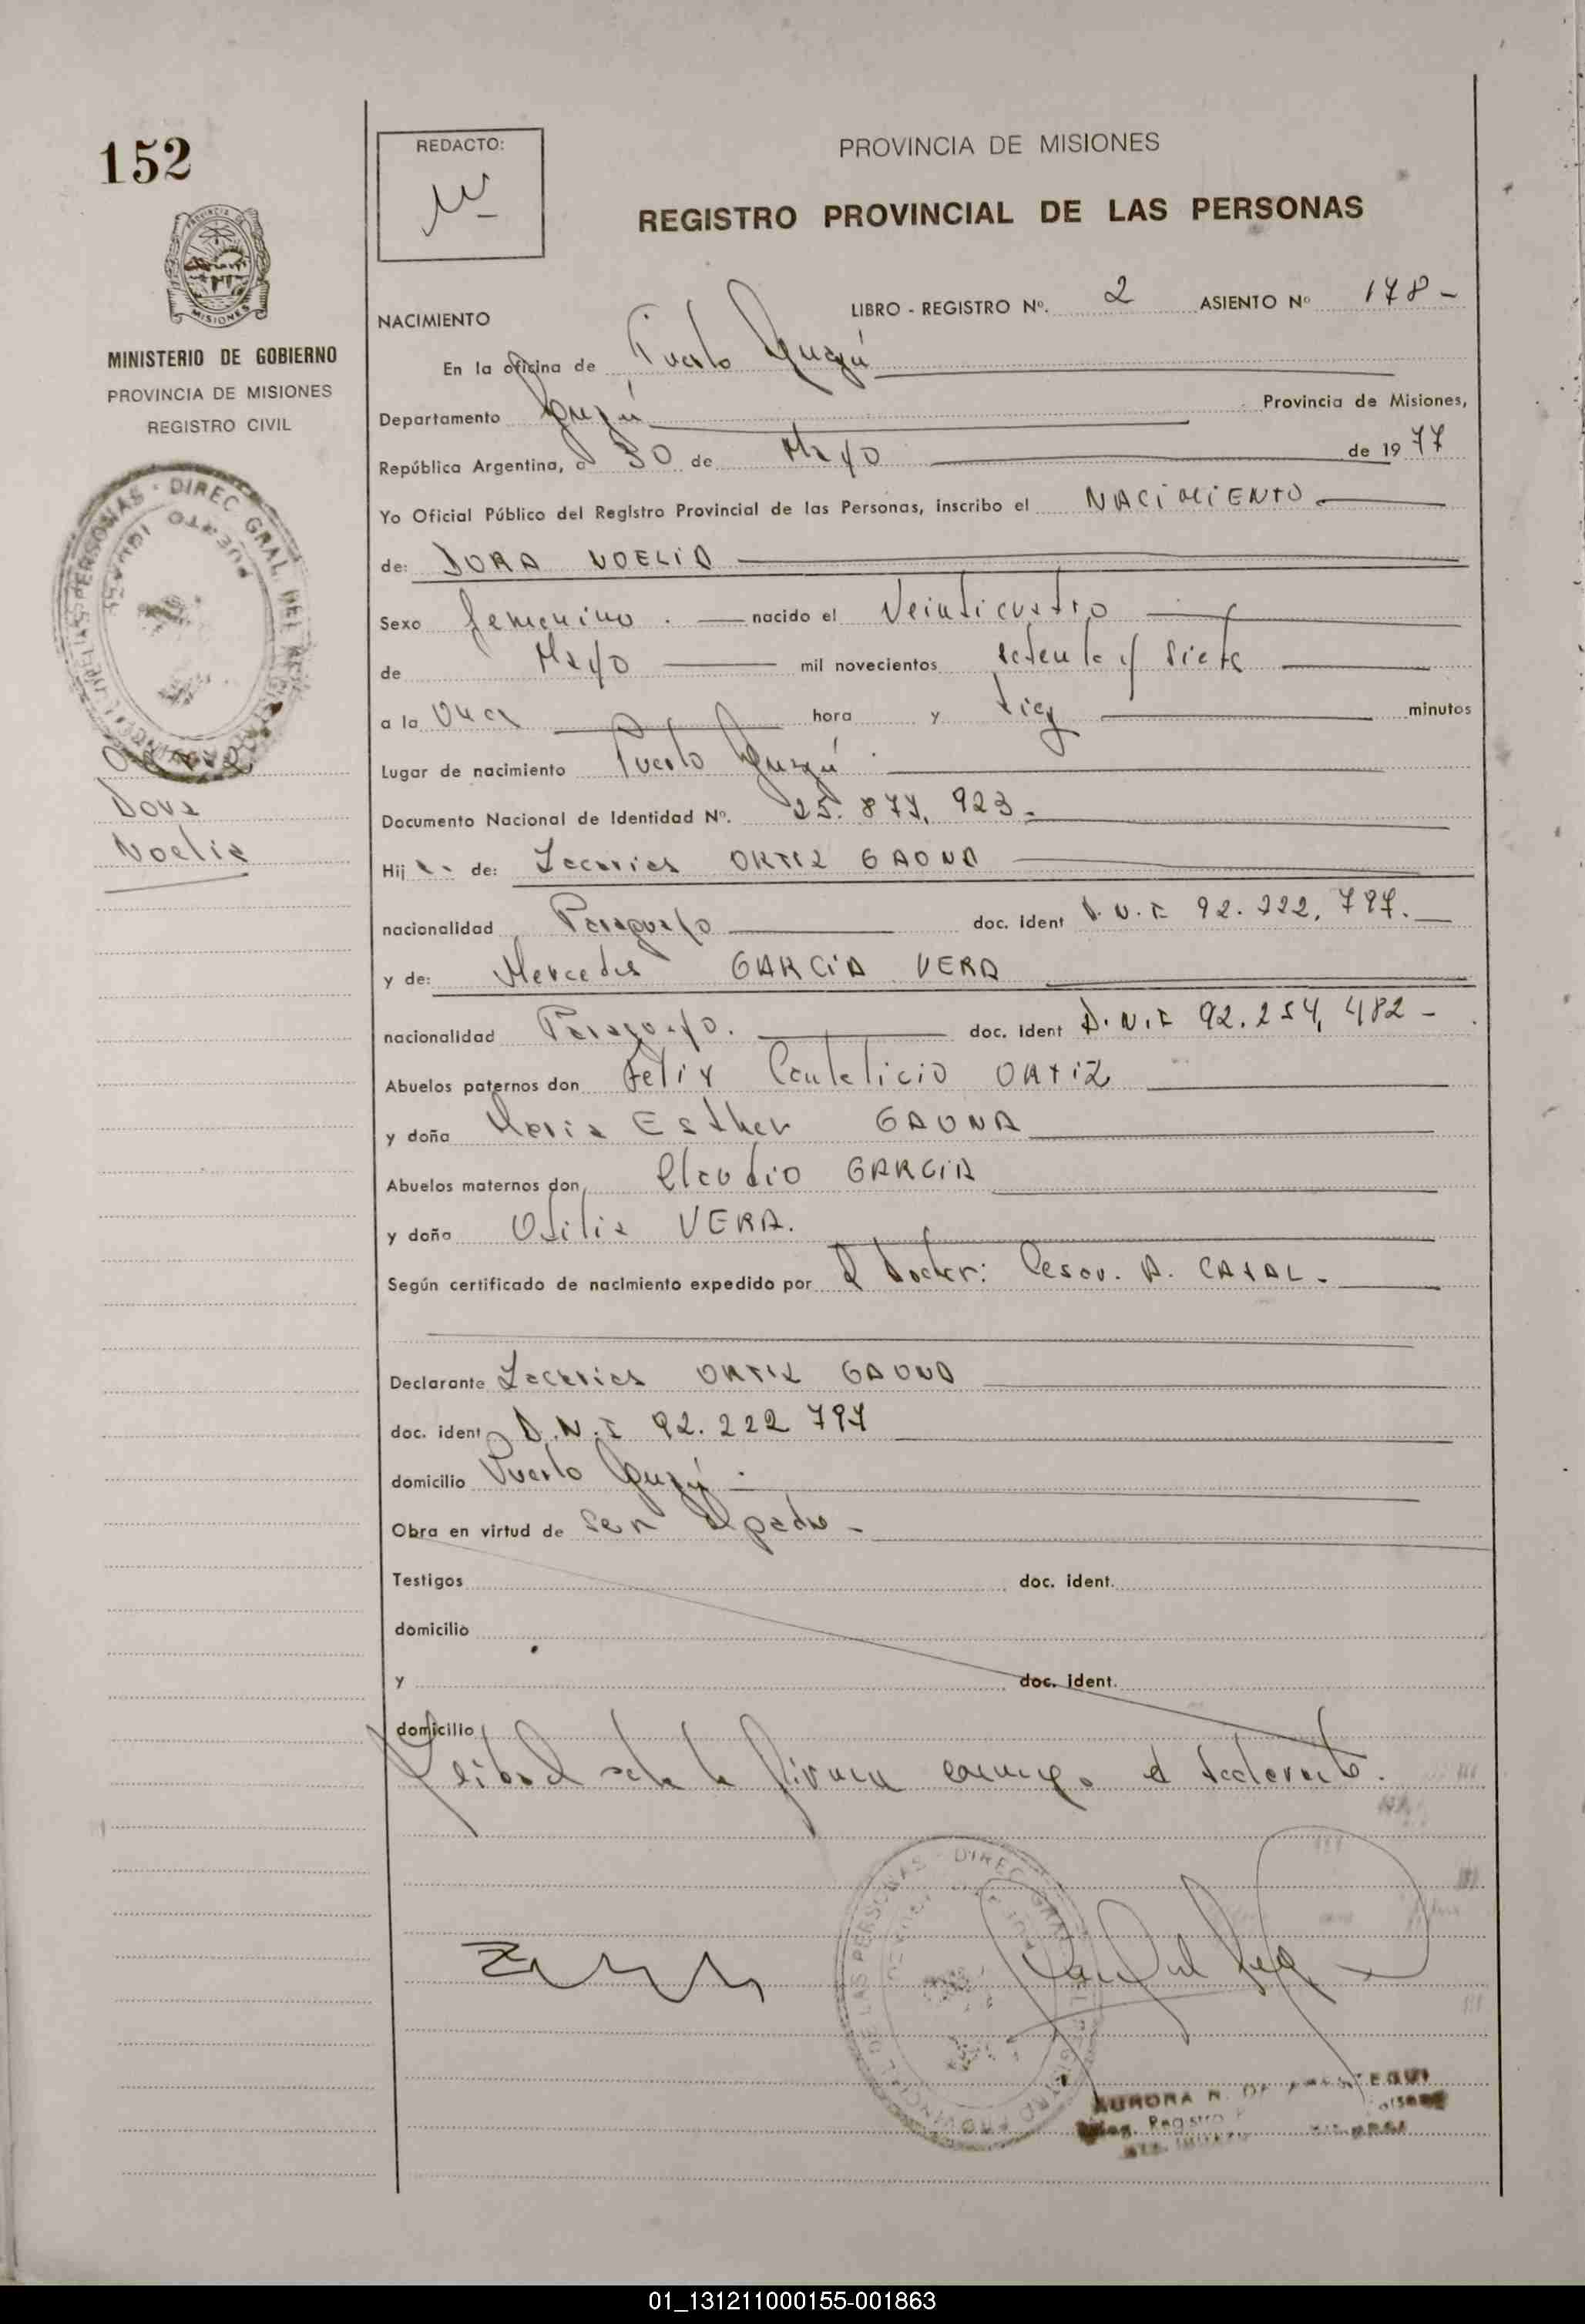 152
REDACTO:
PROVINCIA DE MISIONES
REGISTRO PROVINCIAL DE LAS PERSONAS
MISIONES
MINISTERIO DE GOBIERNO
PROVINCIA DE MISIONES
REGISTRO CIVIL
NACIMIENTO LIBRO - REGISTRO Nº. 2 ASIENTO Nº 178-
En la oficina de Puerto Iguazú
Departamento Iguazú Provincia de Misiones,
República Argentina, a 30 de Mayo de 1977
Yo Oficial Público del Registro Provincial de las Personas, inscribo el NACIMIENTO
de: DORA NOELIA
Sexo femenino. nacido el Veinticuatro
de Mayo mil novecientos setenta y siete
a la Una hora y diez minutos
Lugar de nacimiento Puerto Iguazú.
Documento Nacional de Identidad Nº. 25.877.923-
Dora
Noelia
Hij de: Zacarias ORTIZ GAONA
nacionalidad Paraguayo doc. ident D.N.I 92.222.797.
y de: Mercedes GARCIA VERA
nacionalidad Paraguayo. doc. ident D.N.I 92.254.482-
Abuelos paternos don Felix ORTIZ
y doña Maria Esther GAONA
Abuelos maternos don Claudio GARCIA
y doña VERA.
Según certificado de nacimiento expedido por el Doctor: Cesar. A.
Declarante Zacarias ORTIZ GAONA
doc. ident D.N.I 92.222 797
domicilio Puerto Iguazú.
Obra en virtud de ser el padre-
Testigos doc. ident.
domicilio
y doc. ident.
domicilio
Leida el acta la firma conmigo el declarante.
DIREC GRAL DEL REGISTRO PROVINCIAL DE LAS PERSONAS
AURORA N. DE
01_131211000155-001863